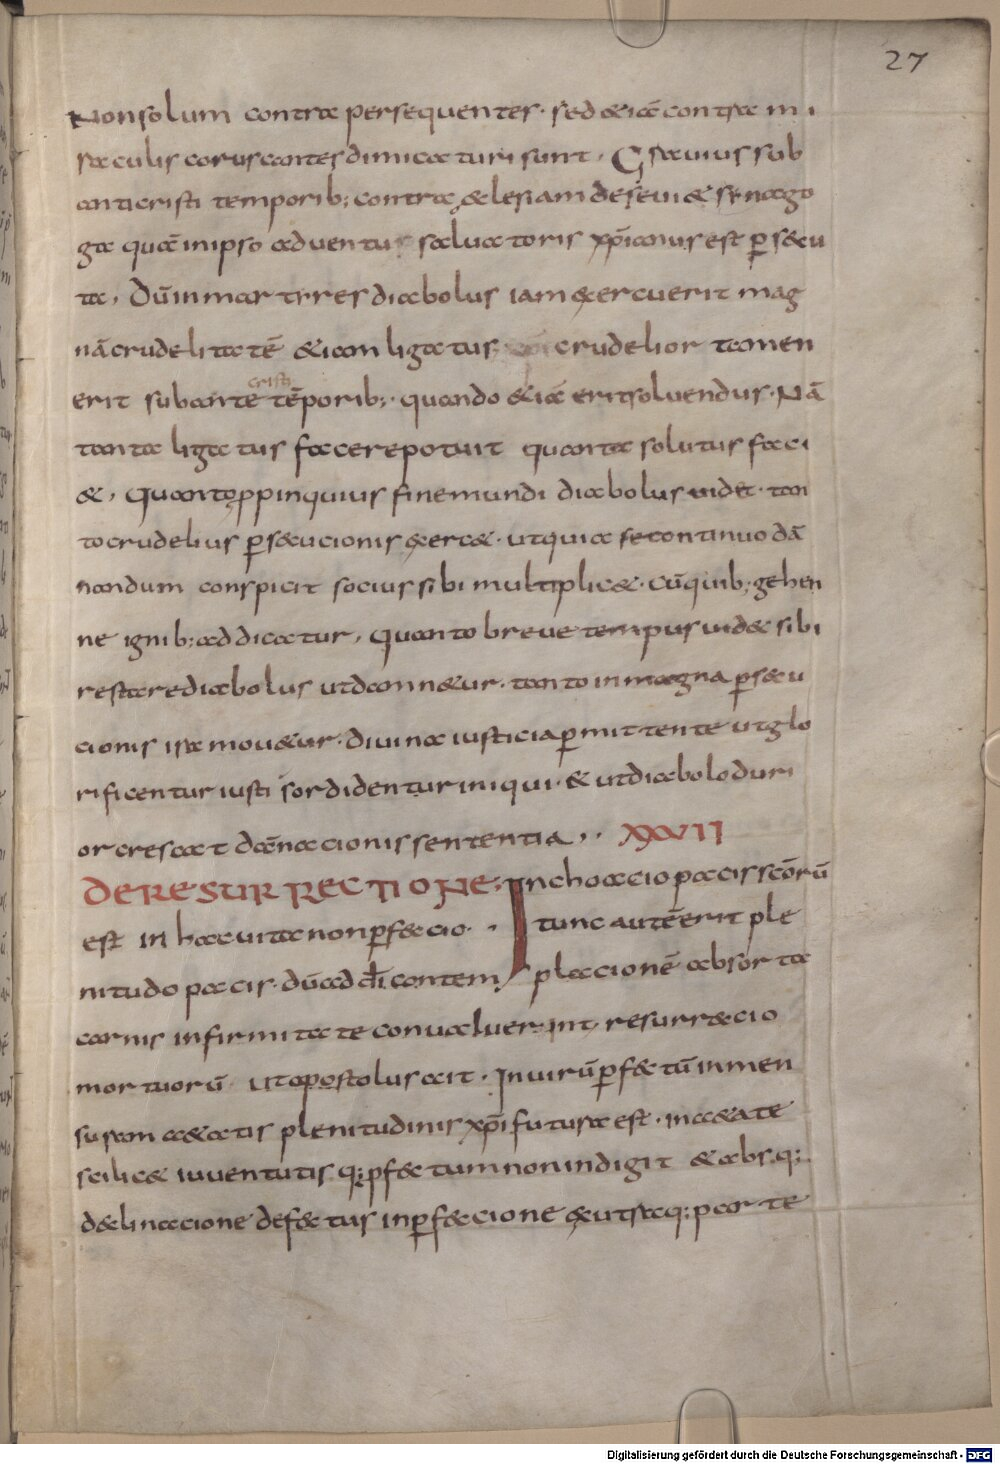 27
Nonsolum contra persequentes· sed &iā contra mi
raculis coruscantes dimicaturi sunt· Grauius sub
anticristi temporib; contra ęclesiam deseui& sinago
ga quā inipso aduentu saluatoris xp̄ianus est ꝑsecu
ta, Dūinmartyres diabolus iam exercuerit mag
nā crudelitatē &iam ligatus crudelior tamen
cristi
erit subante tēporib;· quando &iā erit soluendus· Nā
tanta ligatus facere potuit quanta solutus faci
&, Quanto ꝓpinquius finem mundi diabolus uidet· tan
to crudelius ꝑs&ucionis exerc&· utquia se continuo dā
nandum conspicit socius sibi multiplic&· cūquib; gehen
ne ignib; addicatur, Quanto breue tempus uid& sibi
restare diabolus utdamn&ur· tanto in magna ꝑs&u
cionis ira mou&ur· diuina iusticia ꝑmittente utglo
rificentur iusti sordidentur iniqui· & utdiabolo duri
or crescat dānacionis sententia, · XXVII
DE RESURRECTIONE; Inchoacio pacis sc̄orū
est in hac uita non ꝑf&cio· · tunc autē erit ple
nitudo pacis· dūad dī contem placionē absorta
carnis infirmitate conualuerint, resurr&cio
mortuorū ut apostolus ait· Inuirū ꝑf&tū inmen
suram a&atis plenitudinis xp̄i futura est· in a&ate
scilic& iuuentutis q; pf&tum non indigit & abs q;
d&linacione def&tus inꝑf&cione exutraq; parte
Digitalisierung gefördert durch die Deutsche Forschungsgemeinschaft - DFG